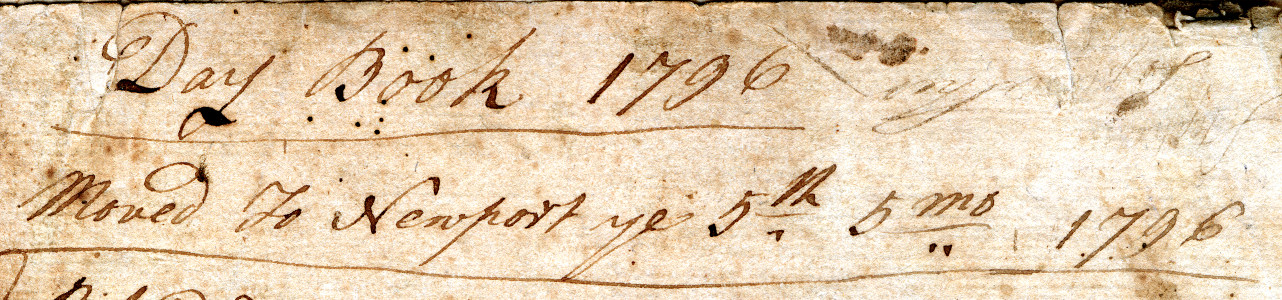 Day Book 1796
Moved To Newport ye 5th 5 mo 1796